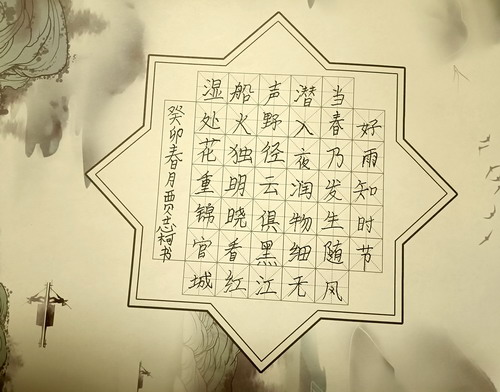 好雨知时节
当春乃发生随风
潜入夜润物细无
声野径云俱黑江
船火独明晓看红
湿处花重锦官城
癸卯春月贾志书